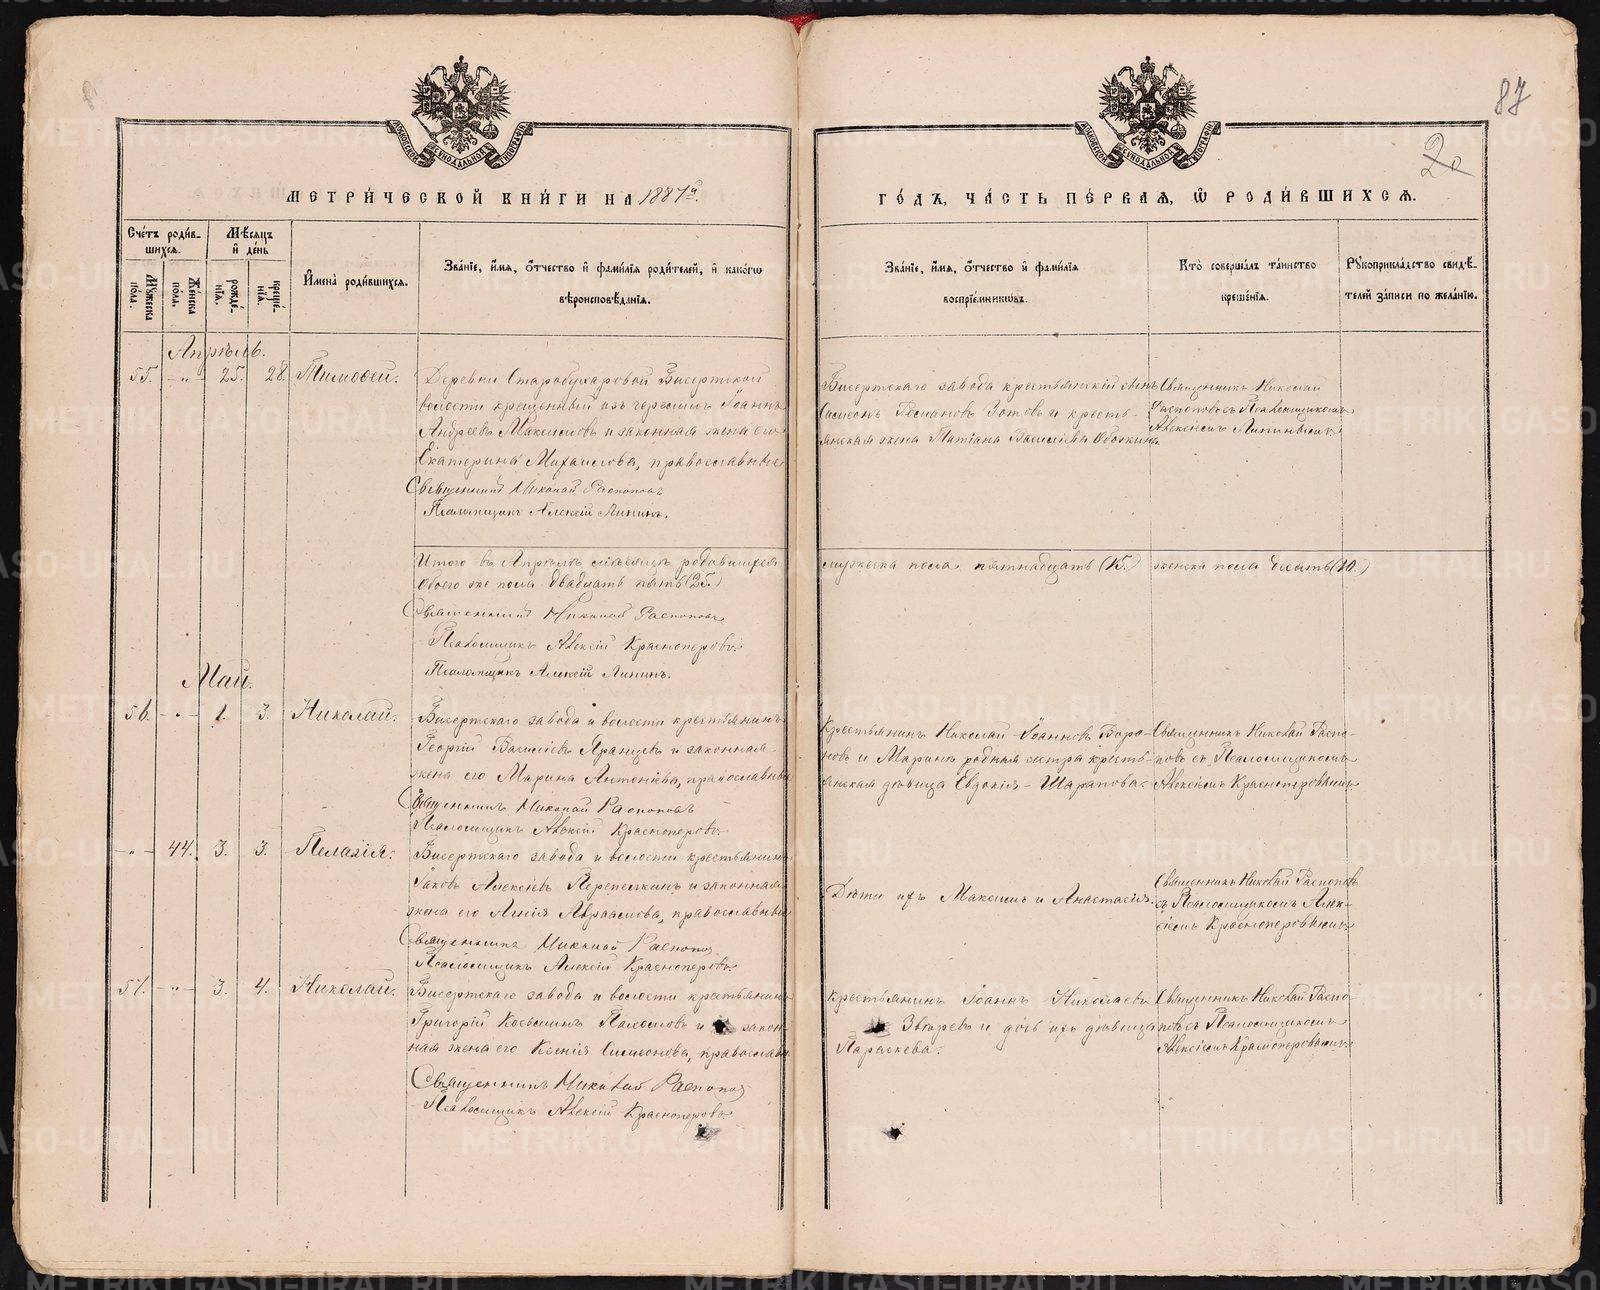 87
20
МЕТРИ́ЧЕСКОЙ КНИ́ГИ НА 1887й.
ГО́ДЪ, ЧА́СТЬ ПЕ́РВАЯ, Ѡ РОДИ́ВШИХСЯ.
Сче́тъ роди́в-
шихся.
Мѣ́сяцъ
и҆ де́нь
Мꙋжеска
по́ла.
Же́нска
пола.
рожде́-
нїѧ.
креще́-
нїѧ.
И҆мена̀ роди́вшихся.
Зва́нїе, и҆́мя, ѻ҆́тчество и҆ фами́лїя роди́телей, и҆ како́гѡ
вѣроисповѣ́данїя.
Зва́нїе, и҆́мя, ѻ҆́тчество и҆ фами́лїя
воспрїе́мниковъ.
Кто̀ соверша́лъ та́инство
креще́нїя.
Рꙋкоприкла́дство свидѣ́-
телей за́писи по жела́нїю.
Апрѣль.
55. - „ - 25. 28. Тимоѳей.
Деревни Старобухаровой Бисертской
волости крещенный изъ черемисъ Іоаннъ
Андреевъ Максимовъ и законная жена его
Екатерина Михаилова, православные
Священникъ Николай Распоповъ
Псаломщикъ Алексій Липинъ.
Бисертскаго завода крестьянскій сынъ
Симеонъ Зотовъ и кресть-
янская жена Татіана Василіева
Священникъ Николай
Распоповъ съ Псаломщикомъ
Алексіемъ Липинымъ.
Итого въ Апрѣлѣ мѣсяцѣ родившихся
обоего же пола двадцать пять (25.)
мужеска пола пятнадцать (15.) женска пола десять (10.)
Священникъ Николай Распоповъ
Псаломщикъ Алексій Красноперовъ.
Псаломщикъ Алексій Липинъ.
Май.
56. - „ - 1. 3. Николай.
Бисертскаго завода и волости крестьянинъ
Георгій Василіевъ Яранцевъ и законная
жена его Марина Антоніева, православные
Священникъ Николай Распоповъ
Псаломщикъ Алексій Красноперовъ.
Крестьянинъ Николай Іоанновъ Воро-
новъ и Марины родная сестра кресть-
янская дѣвица Евдокія Шарапова.
Священникъ Николай Распо-
повъ съ Псаломщикомъ
Алексіемъ Красноперовымъ
- „ - 44. 3. 3. Пелагія.
Бисертскаго завода и волости крестьянинъ
Іаковъ Алексіевъ Перепелкинъ и законная
жена его Агнія Авраамова, православные
Священникъ Николай Распоповъ
Псаломщикъ Алексій Красноперовъ
Дѣти ихъ Максимъ и Анастасія.
Священникъ Николай Распоповъ
съ Псаломщикомъ Алек-
сіемъ Красноперовымъ
57. - „ - 3. 4. Николай.
Бисертскаго завода и волости крестьянинъ
Григорій Косминъ и закон-
ная жена его Ксенія Симеонова, православные
Священникъ Николай Распоповъ
Псаломщикъ Алексій Красноперовъ
Крестьянинъ Іоаннъ Николаевъ
Звѣревъ и дочь ихъ дѣвица
Параскева.
Священникъ Николай Распо-
повъ съ Псаломщикомъ
Алексіемъ Красноперовымъ.
METRIKI.GASO-URAL.RU